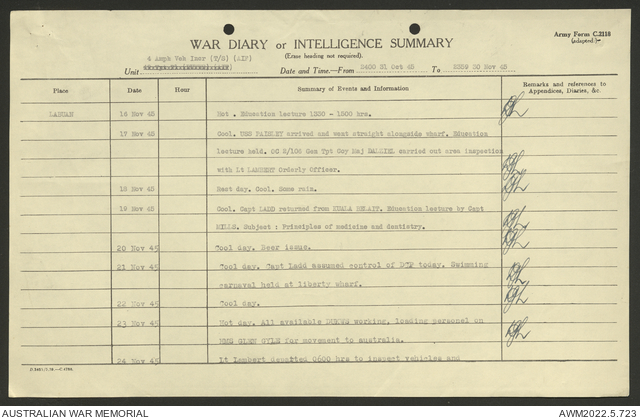 Army Form C.2118
(adapted)
WAR DIARY or INTELLIGENCE SUMMARY
(Erase heading not required).
4 Amph Veh Incr (T/S) (AIF)
Unit
Date and Time.—From 2400 31 Oct 45 To 2359 30 Nov 45
Place Date Hour Summary of Events and Information Remarks and references to Appendices, Diaries, &c.
LABUAN 16 Nov 45 Hot. Education lecture 1330 - 1500 hrs.
17 Nov 45 Cool. arrived and went straight alongside wharf. Education
lecture held. OC 2/108 Gen Tpt Coy Maj carried out area inspection
with Lt LAMBERT Orderly Officer.
18 Nov 45 Rest day. Cool. Some rain.
19 Nov 45 Cool. Capt LADD returned from KUALA BELAIT. Education lecture by Capt
MILLS. Subject : Principles of medicine and dentistry.
20 Nov 45 Cool day. Beer issue.
21 Nov 45 Cool day. Capt Ladd assumed control of today. Swimming
carnaval held at liberty wharf.
22 Nov 45 Cool day.
23 Nov 45 Hot day. All available DUKWS working, loading personel on
GLEN GYLE for movement to australia.
24 Nov 45 Lt Lambert departed 0600 hrs to inspect vehicles and
AUSTRALIAN WAR MEMORIAL AWM2022.5.723